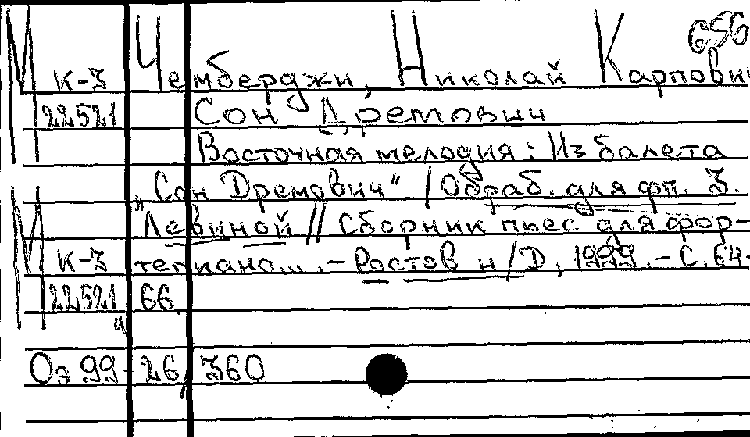 656
М К-3 Чемберджи, Николай Карпови
22521 Сон Дремович
Восточная мелодия: Из балета
„Сон Дремович" / Обраб. для фп. З.
Левиной // Сборник пьес для фор-
М К-3 тепиано... .- Ростов н/Д, 1999.- С. 64-
22521 66.
Оз 99 26 360